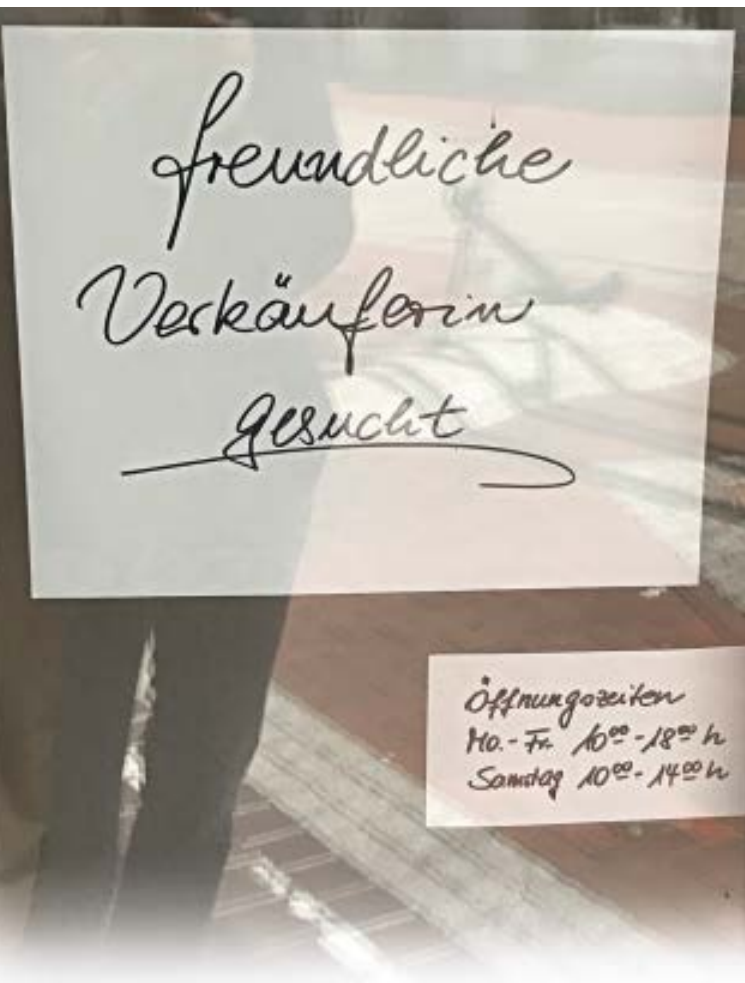 freundliche
Verkäuferin
gesucht
Öffnungszeiten
Mo.-Fr. 10⁰⁰-18⁰⁰ h
Samstag 10⁰⁰-14⁰⁰ h